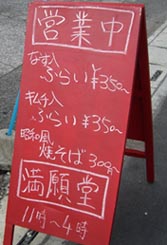 営業中
なす入
ふらい ¥350〜
キムチ入
ふらい ¥350〜
昭和の風
焼そば 300〜
満願堂
11時〜4時